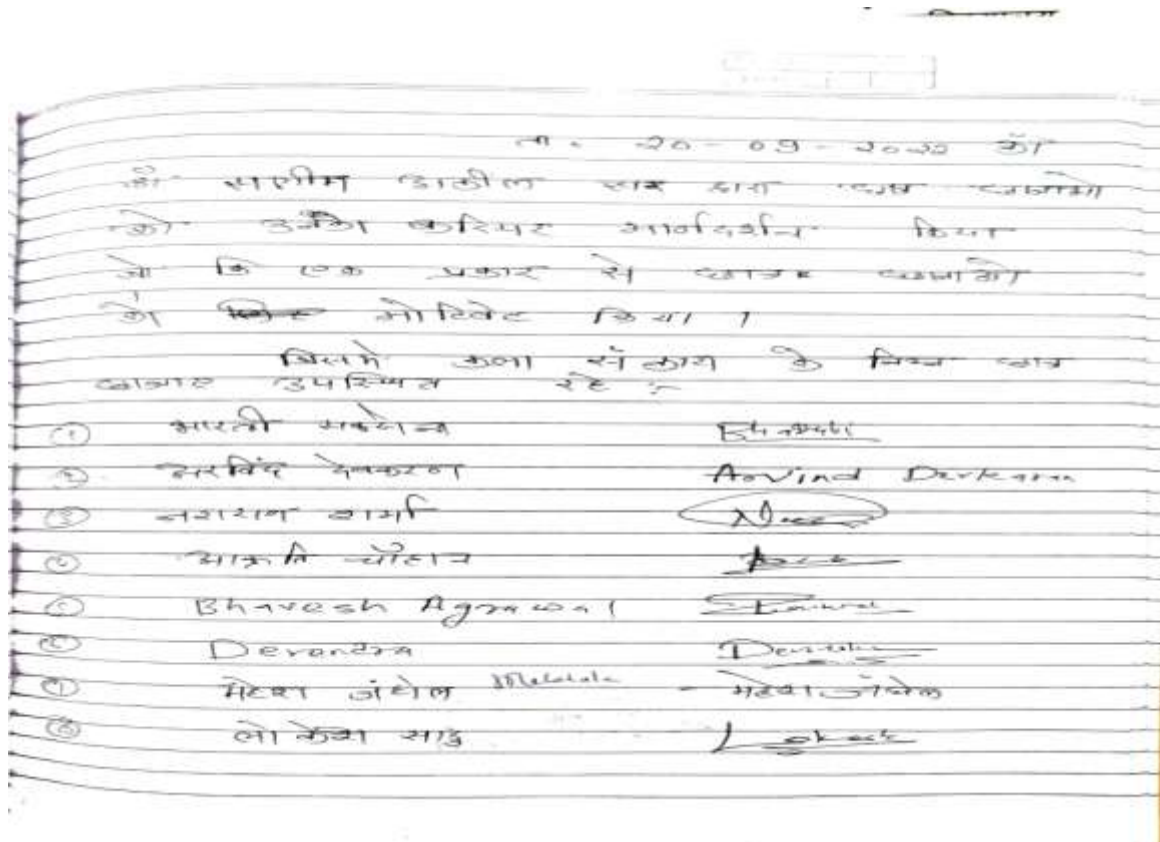 ता. 20-09-2022 को
डॉ सलीम अकील सर द्वारा छात्र छात्राओ
को उनके करियर मार्गदर्शन किया
जो कि एक प्रकार से छात्र छात्राओ
को मोटिवेट किया ।
जिसमे कला संकाय के निम्न छात्र
छात्राए उपस्थित रहे :-
① भारती Bharati
② अरविंद देवकरण Arvind Devkaran
③ नारायण शर्मा
④ आकृति चौहान
⑤ Bhavesh Agrawal
⑥ Devendra
⑦ महेश जंघेल - महेश जंघेल
⑧ लोकेश साहु Lokesh